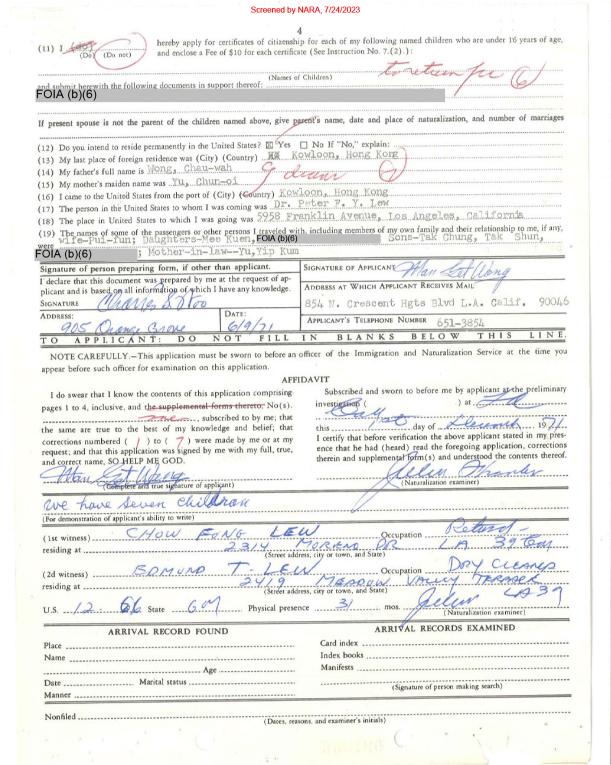 Screened by NARA, 7/24/2023
4
(11) I (do) (Do) (Do not) hereby apply for certificates of citizenship for each of my following named children who are under 16 years of age,
and enclose a Fee of $10 for each certificate (See Instruction No. 7.(2).):
to return fee (6)
(Names of Children)
and submit herewith the following documents in support thereof:
FOIA (b)(6)
If present spouse is not the parent of the children named above, give parent's name, date and place of naturalization, and number of marriages
(12) Do you intend to reside permanently in the United States? ☒ Yes ☐ No If "No," explain:
(13) My last place of foreign residence was (City) (Country) Kowloon, Hong Kong
(14) My father's full name is Wong, Chau-wah
(15) My mother's maiden name was Yu, Chun-oi
(16) I came to the United States from the port of (City) (Country) Kowloon, Hong Kong
(17) The person in the United States to whom I was coming was Dr. Peter P. Y. Lew
(18) The place in the United States to which I was going was 5958 Franklin Avenue, Los Angeles, California
(19) The names of some of the passengers or other persons I traveled with, including members of my own family and their relationship to me, if any,
were wife-Pui-fun; Daughters-Mee Kuen, FOIA (b)(6) Sons-Tak Chung, Tak Shun,
FOIA (b)(6) ; Mother-in-law--Yu, Yip Kum
Signature of person preparing form, if other than applicant.
I declare that this document was prepared by me at the request of applicant and is based on all information of which I have any knowledge.
SIGNATURE
ADDRESS: 905 Orange Grove
DATE: 6/9/71
SIGNATURE OF APPLICANT Man Sat Wong
ADDRESS AT WHICH APPLICANT RECEIVES MAIL
854 N. Crescent Hgts Blvd L.A. Calif. 90046
APPLICANT'S TELEPHONE NUMBER 651-3854
TO APPLICANT: DO NOT FILL IN BLANKS BELOW THIS LINE.
NOTE CAREFULLY.—This application must be sworn to before an officer of the Immigration and Naturalization Service at the time you
appear before such officer for examination on this application.
AFFIDAVIT
I do swear that I know the contents of this application comprising
pages 1 to 4, inclusive, and the supplemental forms thereto, No(s).
, subscribed to by me; that
the same are true to the best of my knowledge and belief; that
corrections numbered ( 1 ) to ( 7 ) were made by me or at my
request; and that this application was signed by me with my full, true,
and correct name, SO HELP ME GOD.
Man Sat Wong
(Complete and true signature of applicant)
Subscribed and sworn to before me by applicant at the preliminary
investigation ( ) at LA
this day of December, 1971
I certify that before verification the above applicant stated in my presence that he had (heard) read the foregoing application, corrections
therein and supplemental form(s) and understood the contents thereof.
(Naturalization examiner)
We have seven children
(For demonstration of applicant's ability to write)
(1st witness) CHOW FONG LEW Occupation Retired
residing at 2314 MORENO DR LA 39
(Street address, city or town, and State)
(2d witness) EDMUND T. LEW Occupation DRY CLEANER
residing at 2419 MEADOW VALLEY TERRACE LA 39
(Street address, city or town, and State)
U.S. 12-66 State 6M Physical presence 31 mos.
(Naturalization examiner)
ARRIVAL RECORD FOUND
Place
Name
Age
Date Marital status
Manner
ARRIVAL RECORDS EXAMINED
Card index
Index books
Manifests
(Signature of person making search)
Nonfiled
(Dates, reasons, and examiner's initials)